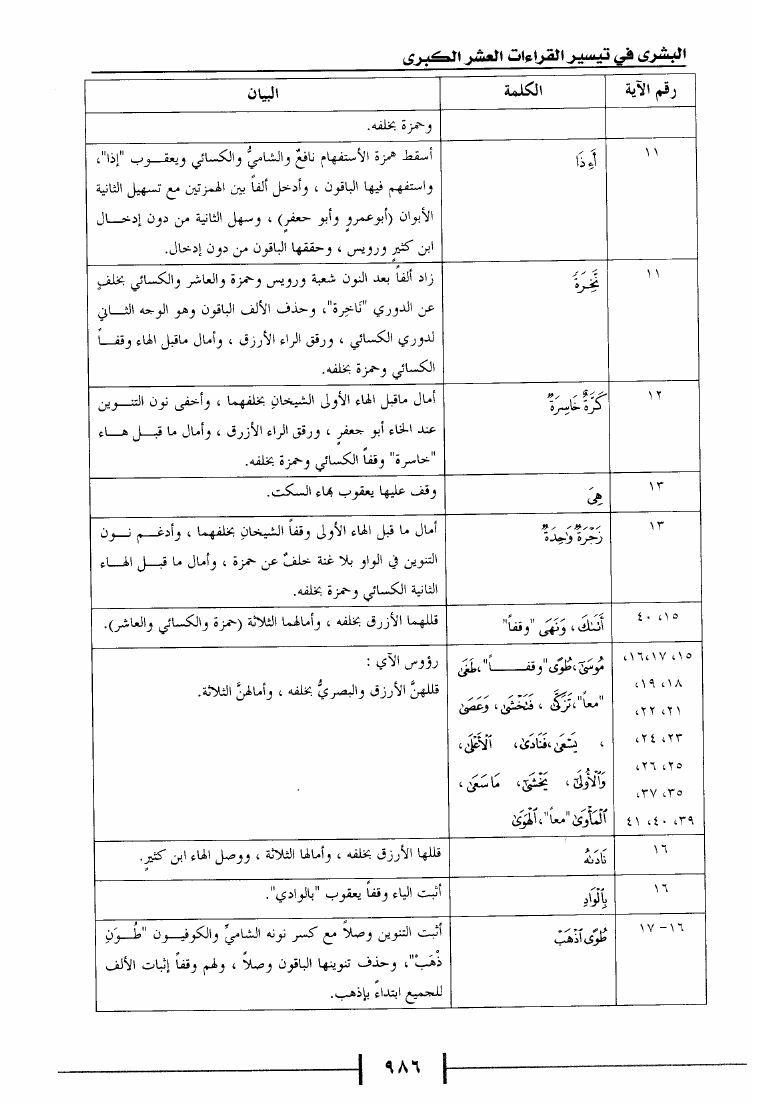 البشرى في تيسير القراءات العشر الكبرى
رقم الآية الكلمة البيان
وحمزة بخلفه.
١١ أَءِذَا أسقط همزة الأستفهام نافعٌ والشاميُّ والكسائي ويعقـوب "إذا"،
واستفهم فيها الباقون ، وأدخل ألفاً بين الهمزتين مع تسهيل الثانية
الأبوان (أبوعمروٍ وأبو جعفرٍ) ، وسهل الثانية من دون إدخـــال
ابن كثيرٍ ورويس ، وحققها الباقون من دون إدخال.
١١ نَّخِرَةً زاد ألفاً بعد النون شعبة ورويس وحمزة والعاشر والكسائي بخلفٍ
عن الدوري "نَاخِرة"، وحذف الألف الباقون وهو الوجه الثـاني
لدوري الكسائي ، ورقق الراء الأزرق ، وأمال ماقبل الهاء وقفــاً
الكسائي وحمزة بخلفه.
١٢ كَرَّةٌ خَاسِرَةٌ أمال ماقبل الهاء الأولى الشيخانِ بخلفهما ، وأخفى نون التنـــوين
عند الخاء أبو جعفرٍ ، ورقق الراء الأزرق ، وأمال ما قبــل هـــاء
"خاسرة" وقفاً الكسائي وحمزة بخلفه.
١٣ هِىَ وقف عليها يعقوب بهاء السكت.
١٣ زَجْرَةٌ وَٰحِدَةٌ أمال ما قبل الهاء الأولى وقفاً الشيخانِ بخلفهما ، وأدغــم نــون
التنوين في الواو بلا غنة خلفٌ عن حمزة ، وأمال ما قبـــل الهــاء
الثانية الكسائي وحمزة بخلفه.
١٥، ٤٠ أَتَىٰكَ ، وَنَهَى "وقفاً" قللهما الأزرق بخلفه ، وأمالهما الثلاثة (حمزة والكسائي والعاشر).
١٥، ١٧، ١٦، مُوسَىٰٓ، طُوًى "وقفــــــاً"، طَغَىٰ رؤوس الآي :
١٨، ١٩، "معاً"، تَزَكَّىٰ ، فَتَخْشَىٰ، وَعَصَىٰ قللهنَّ الأزرق والبصريُّ بخلفه ، وأمالهنَّ الثلاثة.
٢١، ٢٢،
٢٣، ٢٤، ، يَسْعَىٰ، فَنَادَىٰ، ٱلْأَعْلَىٰ،
٢٥، ٢٦، وَٱلْأُولَىٰٓ، يَخْشَىٰٓ، مَاسَعَىٰ،
٣٥، ٣٧،
٣٩، ٤٠، ٤١ ٱلْمَأْوَىٰ "معاً"، ٱلْهَوَىٰ
١٦ نَادَىٰهُ قللها الأزرق بخلفه ، وأمالها الثلاثة ، ووصل الهاء ابن كثيرٍ.
١٦ بِٱلْوَادِ أثبت الياء وقفاً يعقوب "بالوادي".
١٦-١٧ طُوًى ٱذْهَبْ أثبت التنوين وصلاً مع كسر نونه الشاميِّ والكوفيـون "طُــوَنِ
ذْهَبْ"، وحذف تنوينها الباقون وصلاً ، ولهم وقفاً إثبات الألف
للجميع ابتداءً بإذهب.
٩٨٦